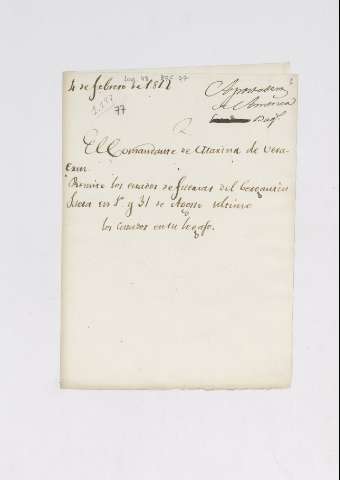 4 de febrero de 1812
77
Apostadero
de America
El Comandante de Marina de Vera-
cruz
Remite los estados de fuerzas del Bergantin
en 1º y 31 de Agosto ultimo
los estados en su legajo.